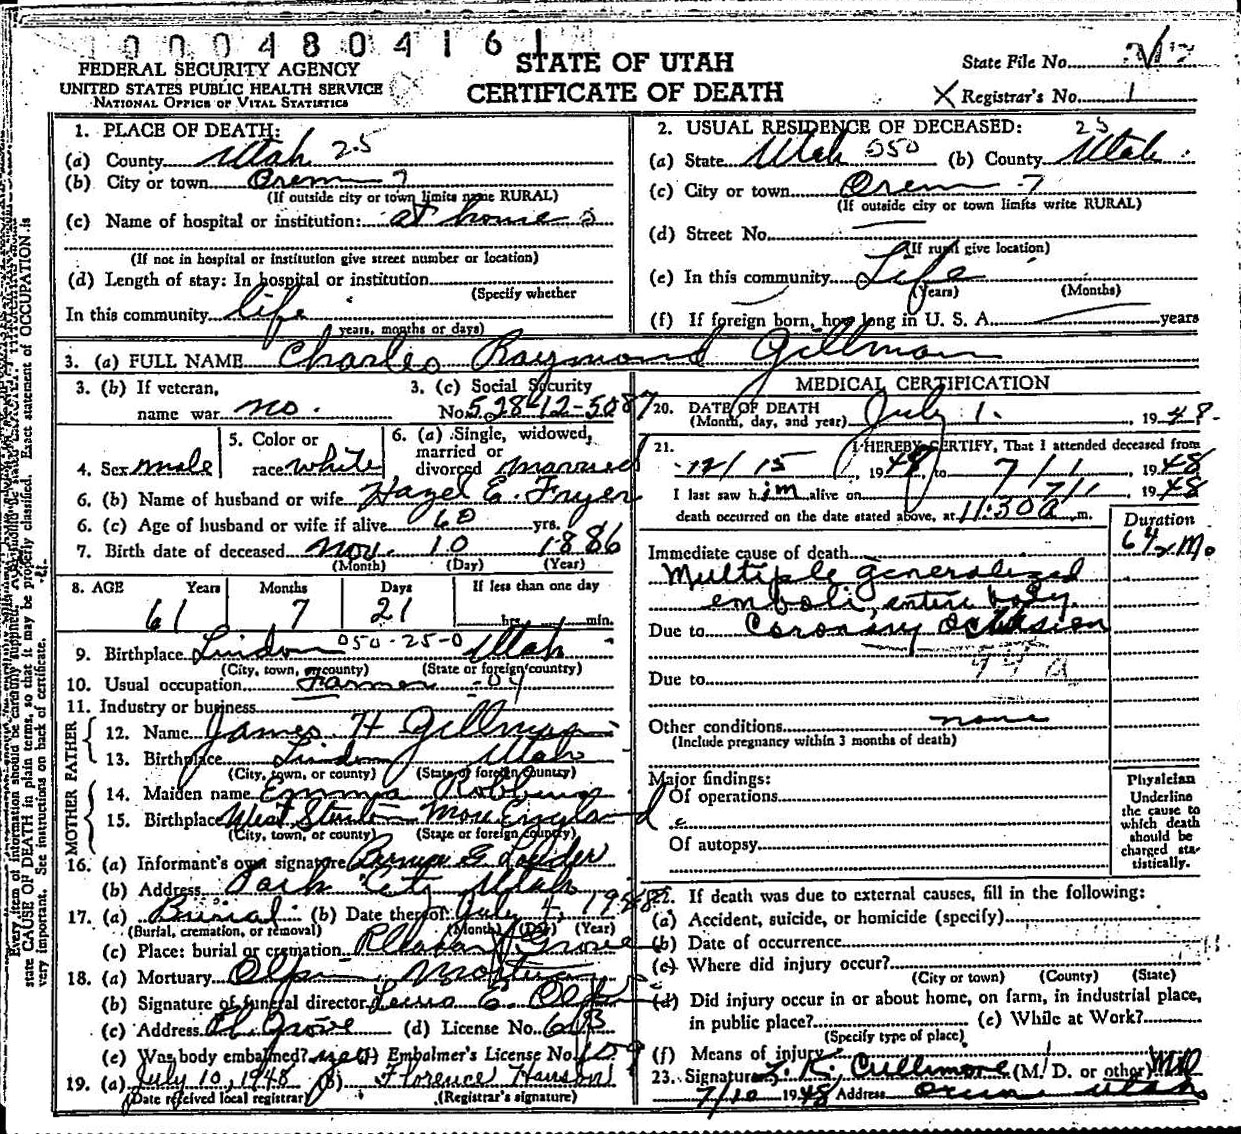 1000480416 1
FEDERAL SECURITY AGENCY
UNITED STATES PUBLIC HEALTH SERVICE
NATIONAL OFFICE OF VITAL STATISTICS
STATE OF UTAH
CERTIFICATE OF DEATH
State File No.
X Registrar's No. 1
Every item of information should be carefully supplied. AGE should be
state CAUSE OF DEATH in plain terms, so that it may be properly classified. Exact statement of OCCUPATION is
very important. See instructions on back of certificate.
1. PLACE OF DEATH:
(a) County Utah 25
(b) City or town Orem 7
(If outside city or town limits name RURAL)
(c) Name of hospital or institution: at home
(If not in hospital or institution give street number or location)
(d) Length of stay: In hospital or institution
(Specify whether
In this community life
years, months or days)
2. USUAL RESIDENCE OF DECEASED: 25
(a) State Utah 050 (b) County Utah
(c) City or town Orem 7
(If outside city or town limits write RURAL)
(d) Street No.
(If rural give location)
(e) In this community Life
(Years) (Months)
(f) If foreign born, how long in U. S. A. years
3. (a) FULL NAME Charles Raymond Gillman
3. (b) If veteran,
name war no.
3. (c) Social Security
No. 528-12-5087
4. Sex male
5. Color or
race white
6. (a) Single, widowed,
married or
divorced married
6. (b) Name of husband or wife Hazel E. Fryer
6. (c) Age of husband or wife if alive 60 yrs.
7. Birth date of deceased Nov. 10 1886
(Month) (Day) (Year)
8. AGE Years Months Days If less than one day
61 7 21 hrs. min.
9. Birthplace Lindon 050-25-0 Utah
(City, town, or county) (State or foreign country)
10. Usual occupation Farmer -04
11. Industry or business
FATHER
12. Name James H Gillman
13. Birthplace Lindon Utah
(City, town, or county) (State or foreign country)
MOTHER
14. Maiden name Emma Robbins
15. Birthplace West England
(City, town, or county) (State or foreign country)
16. (a) Informant's own signature
(b) Address Park City Utah
17. (a) Burial (b) Date thereof July 4, 1948
(Burial, cremation, or removal) (Month) (Day) (Year)
(c) Place: burial or cremation Pleasant Grove
18. (a) Mortuary Olpin Mortuary
(b) Signature of funeral director E. Olpin
(c) Address Pl. Grove (d) License No.
(e) Was body embalmed? yes (f) Embalmer's License No.
19. (a) July 10, 1948 (b) Florence Hanson
(Date received local registrar) (Registrar's signature)
MEDICAL CERTIFICATION
20. DATE OF DEATH
(Month, day, and year) July 1. , 1948.
21. I HEREBY CERTIFY, That I attended deceased from
12/15, 194 to 7/1, 1948
I last saw him alive on 7/1 , 1948
death occurred on the date stated above, at 11:30 a m.
Duration
Immediate cause of death
Multiple generalized
emboli, entire body.
Due to Coronary occlusion
Due to
Other conditions none
(Include pregnancy within 3 months of death)
Major findings:
Of operations
Of autopsy
Physician
Underline
the cause to
which death
should be
charged sta-
tistically.
22. If death was due to external causes, fill in the following:
(a) Accident, suicide, or homicide (specify)
(b) Date of occurrence
(c) Where did injury occur?
(City or town) (County) (State)
(d) Did injury occur in or about home, on farm, in industrial place,
in public place? (e) While at Work?
(Specify type of place)
(f) Means of injury
23. Signature L. R. Cullimore (M. D. or other) MD
7/10 1948 Address Orem Utah